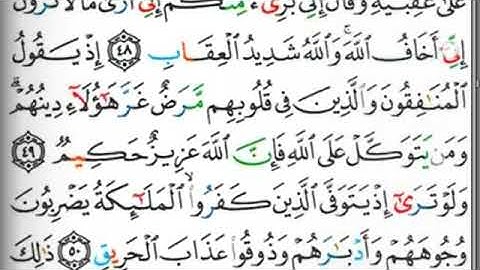 عَلَىٰ عَقِبَيْهِ وَقَالَ إِنِّي بَرِيٓءٌ مِّنكُمْ إِنِّيٓ أَرَىٰ مَا لَا تَرَوْنَ
إِنِّيٓ أَخَافُ ٱللَّهَ ۚ وَٱللَّهُ شَدِيدُ ٱلْعِقَابِ ٤٨ إِذْ يَقُولُ
ٱلْمُنَٰفِقُونَ وَٱلَّذِينَ فِي قُلُوبِهِم مَّرَضٌ غَرَّ هَٰٓؤُلَآءِ دِينُهُمْ ۗ
وَمَن يَتَوَكَّلْ عَلَى ٱللَّهِ فَإِنَّ ٱللَّهَ عَزِيزٌ حَكِيمٌ ٤٩
وَلَوْ تَرَىٰٓ إِذْ يَتَوَفَّى ٱلَّذِينَ كَفَرُوا۟ ۙ ٱلْمَلَٰٓئِكَةُ يَضْرِبُونَ
وُجُوهَهُمْ وَأَدْبَٰرَهُمْ وَذُوقُوا۟ عَذَابَ ٱلْحَرِيقِ ٥٠ ذَٰلِكَ